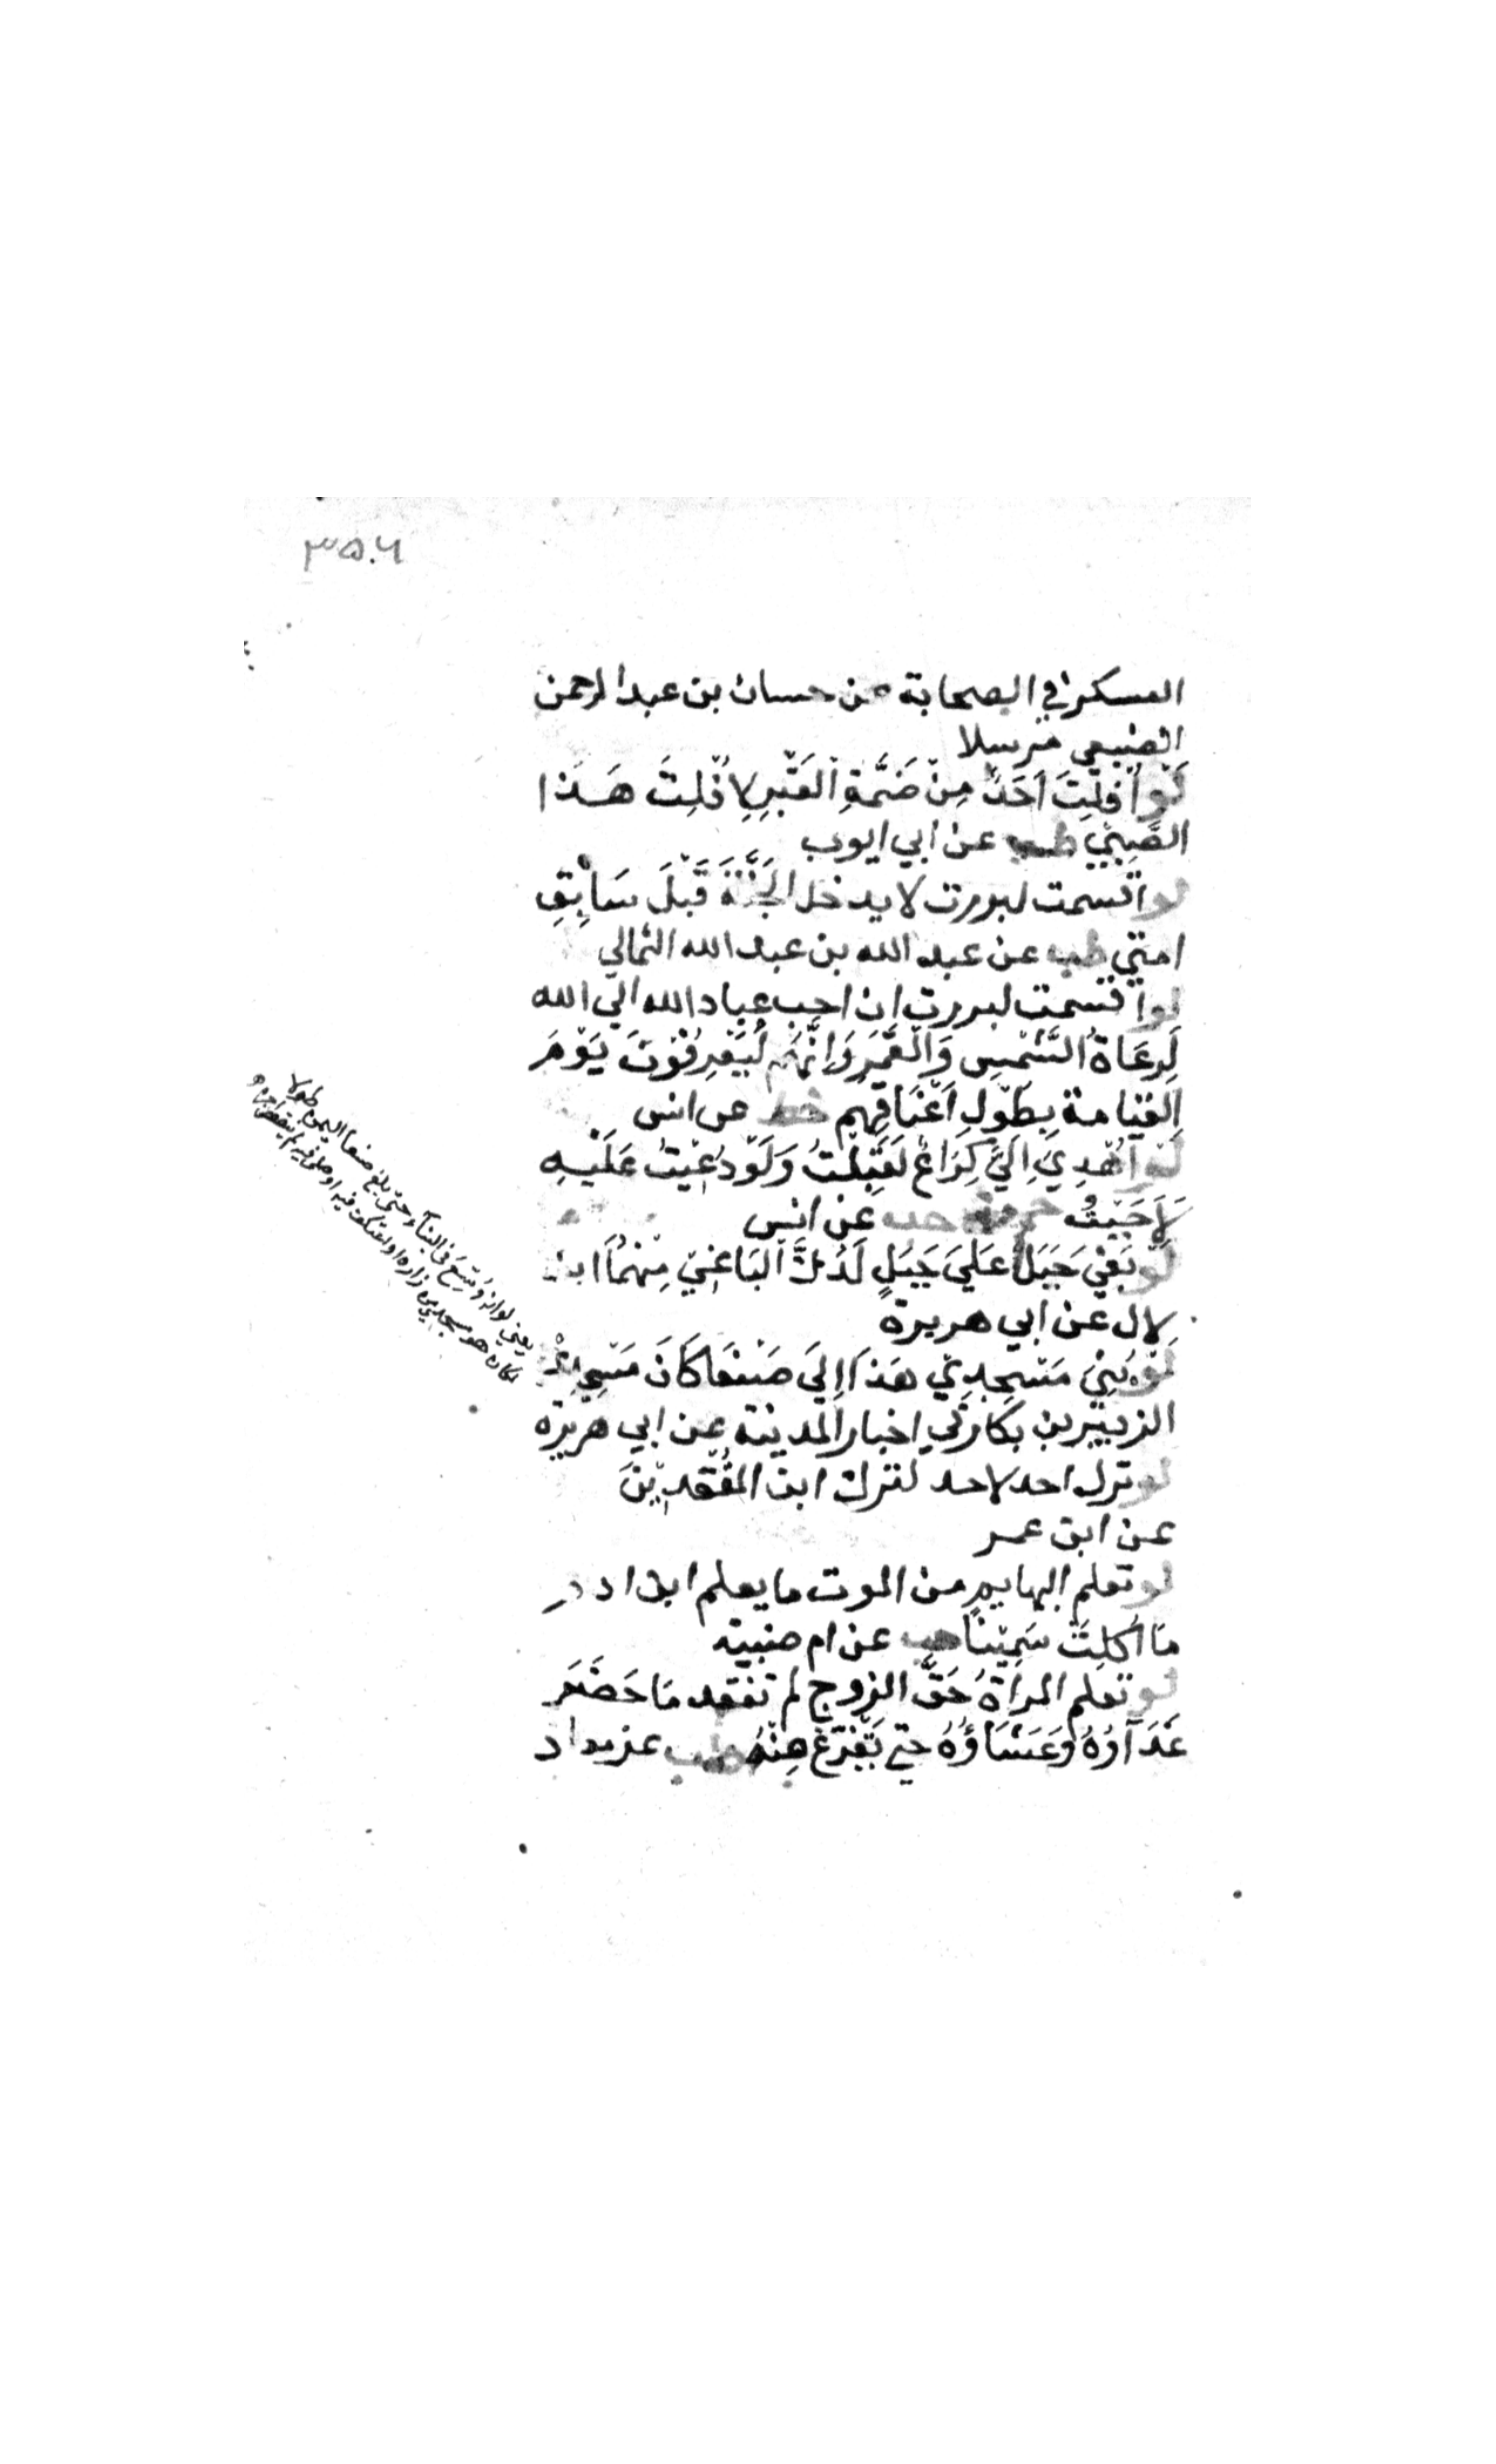 ٣٥٠٦
العسكري في الصحابة عن حسان بن عبدالرحمن
الضبعي مرسلا
لَوْ اَفْلَتَ اَحَدٌ مِنْ ضَمَّةِ الْقَبْرِ لَاُفْلِتَ هَذا
الصَّبِيُّ طب عن ابي ايوب
لو اقسمت لبررت لا يدخل الجَنَّةَ قَبْلَ سَابِقِ
امتي طب عن عبد الله بن عبد الله الثمالي
لو اقسمت لبررت ان احب عباد الله الي الله
لَرُعَاةُ الشَّمْسِ وَالْقَمَرِ وَاِنَّهُم لَيُعْرَفُوْنَ يَوْمَ
القيامة بِطُوْلِ اَعْنَاقِهِم خط عن انس
لَوْ اُهْدِيَ اِلَيَّ كُرَاعٌ لَقَبِلْتُ وَلَوْ دُعِيْتُ عَلَيْهِ
لَاَجَبْتُ حم ت حب عن انس
لَوْ بَغَيْ جَبَلٌ عَلَيَ جَبَلٍ لَدُكَّ الْبَاغِيْ مِنْهُمَا ابن
لال عن ابي هريرة
لَوْ بُنِيَ مَسْجِدِيْ هَذَا اِلَيَ صَنْعَا كَانَ مَسْجِدِيْ
الزبير بن بكار في اخبار المدينة عن ابي هريرة
لو ترك احد لاحد لترك ابن المُقْعَدَيْنَ
عن ابن عمر
لو تعلم البهايم من الموت ما يعلم ابن ادم
مَا اَكَلْتُ سَمِيْنًا هب عن ام صبية
لو تعلم المراةُ حَقَّ الزوج لم تقعد مَا حَضَرَ
غَدَآؤُهُ وَعَشَاؤُهُ حتي يَفْرُغَ مِنْهُ طب عن معاذ
يعني لو انه وُسِّعَ في البنآء حتي بلغ صنعا اليمن طولا
لكان هو مسجدي من زاره او اعتكف فيه او صلي فيه